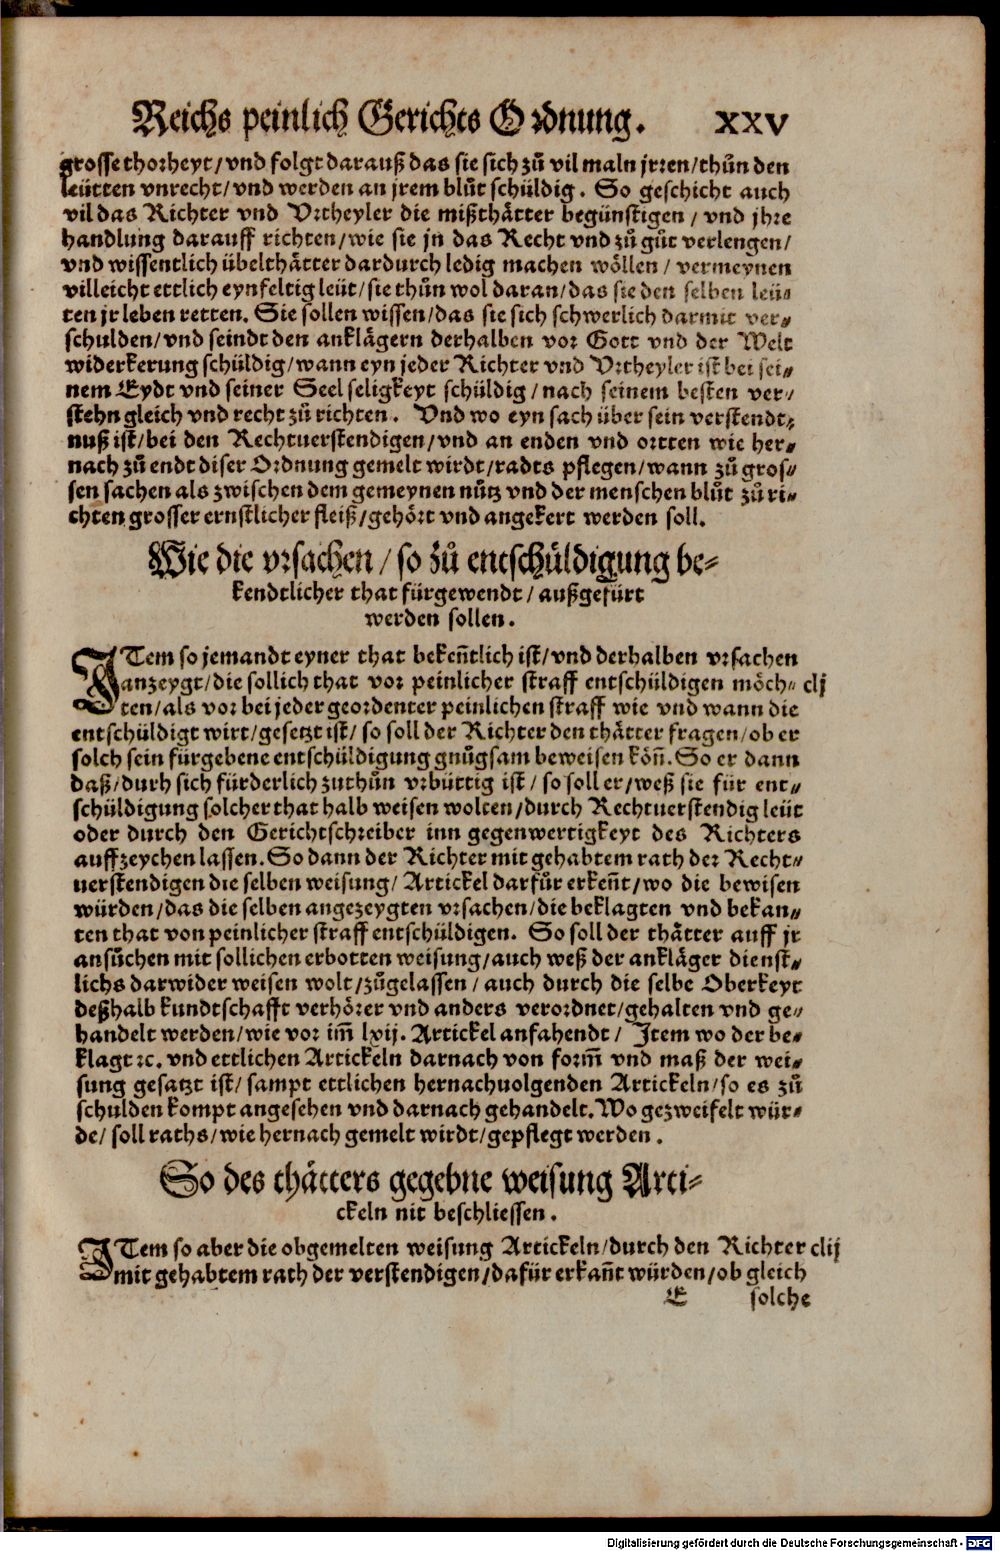 Reichs peinlich Gerichts Ordnung. XXV
grosse thorheyt/vnd folgt darauß das sie sich zů vil maln jrren/thůn den
leütten vnrecht/vnd werden an jrem blůt schüldig. So geschicht auch
vil das Richter vnd Vrtheyler die mißthåtter begünstigen/vnd jhre
handlung darauff richten/wie sie jn das Recht vnd zů gůt verlengen/
vnd wissentlich übelthåtter dardurch ledig machen wöllen/vermeynen
villeicht ettlich eynfeltig leüt/sie thůn wol daran/das sie den selben leü⸗
ten jr leben retten. Sie sollen wissen/das sie sich schwerlich darmit ver⸗
schulden/vnd seindt den anklägern derhalben vor Gott vnd der Welt
widerkerung schüldig/wann eyn jeder Richter vnd Vrtheyler ist bei sei⸗
nem Eydt vnd seiner Seel seligkeyt schüldig/nach seinem besten ver⸗
stehn gleich vnd recht zů richten. Vnd wo eyn sach über sein verstendt⸗
nuß ist/bei den Rechtuerstendigen/vnd an enden vnd ortten wie her⸗
nach zů endt diser Ordnung gemelt wirdt/radts pflegen/wann zů gros⸗
sen sachen als zwischen dem gemeynen nůtz vnd der menschen blůt zů ri⸗
chten grosser ernstlicher fleiß/gehört vnd angekert werden soll.
Wie die vrsachen/so zů entschüldigung be⸗
kendtlicher that fürgewendt/außgefürt
werden sollen.
ITem so jemandt eyner that bekeñtlich ist/vnd derhalben vrsachen
anzeygt/die sollich that vor peinlicher straff entschüldigen möch⸗ clj
ten/als vor bei jeder geordenter peinlichen straff wie vnd wann die
entschüldigt wirt/gesetzt ist/so soll der Richter den thåtter fragen/ob er
solch sein fürgebene entschüldigung gnůgsam beweisen köñ. So er dann
daß/durh sich fürderlich zuthůn vrbüttig ist/so soll er/weß sie für ent⸗
schüldigung solcher that halb weisen wolten/durch Rechtuerstendig leüt
oder durch den Gerichtschreiber inn gegenwertigkeyt des Richters
auffzeychen lassen. So dann der Richter mit gehabtem rath der Recht⸗
uerstendigen die selben weisung/Artickel darfůr erkeñt/wo die bewisen
würden/das die selben angezeygten vrsachen/die beklagten vnd bekan⸗
ten that von peinlicher straff entschüldigen. So soll der thåtter auff jr
ansůchen mit sollichen erbotten weisung/auch weß der ankläger dienst⸗
lichs darwider weisen wolt/zůgelassen/auch durch die selbe Oberkeyt
deßhalb kundtschafft verhörer vnd anders verordnet/gehalten vnd ge⸗
handelt werden/wie vor im̃ lxij. Artickel anfahendt/Item wo der be⸗
klagt ꝛc. vnd ettlichen Artickeln darnach von form̃ vnd maß der wei⸗
sung gesatzt ist/sampt ettlichen hernachuolgenden Artickeln/so es zů
schulden kompt angesehen vnd darnach gehandelt. Wo gezweifelt wür⸗
de/soll raths/wie hernach gemelt wirdt/gepflegt werden.
So des thåtters gegebne weisung Arti⸗
ckeln nit beschliessen.
ITem so aber die obgemelten weisung Artickeln/durch den Richter clij
mit gehabtem rath der verstendigen/dafür erkañt würden/ob gleich
E solche
Digitalisierung gefördert durch die Deutsche Forschungsgemeinschaft - DFG